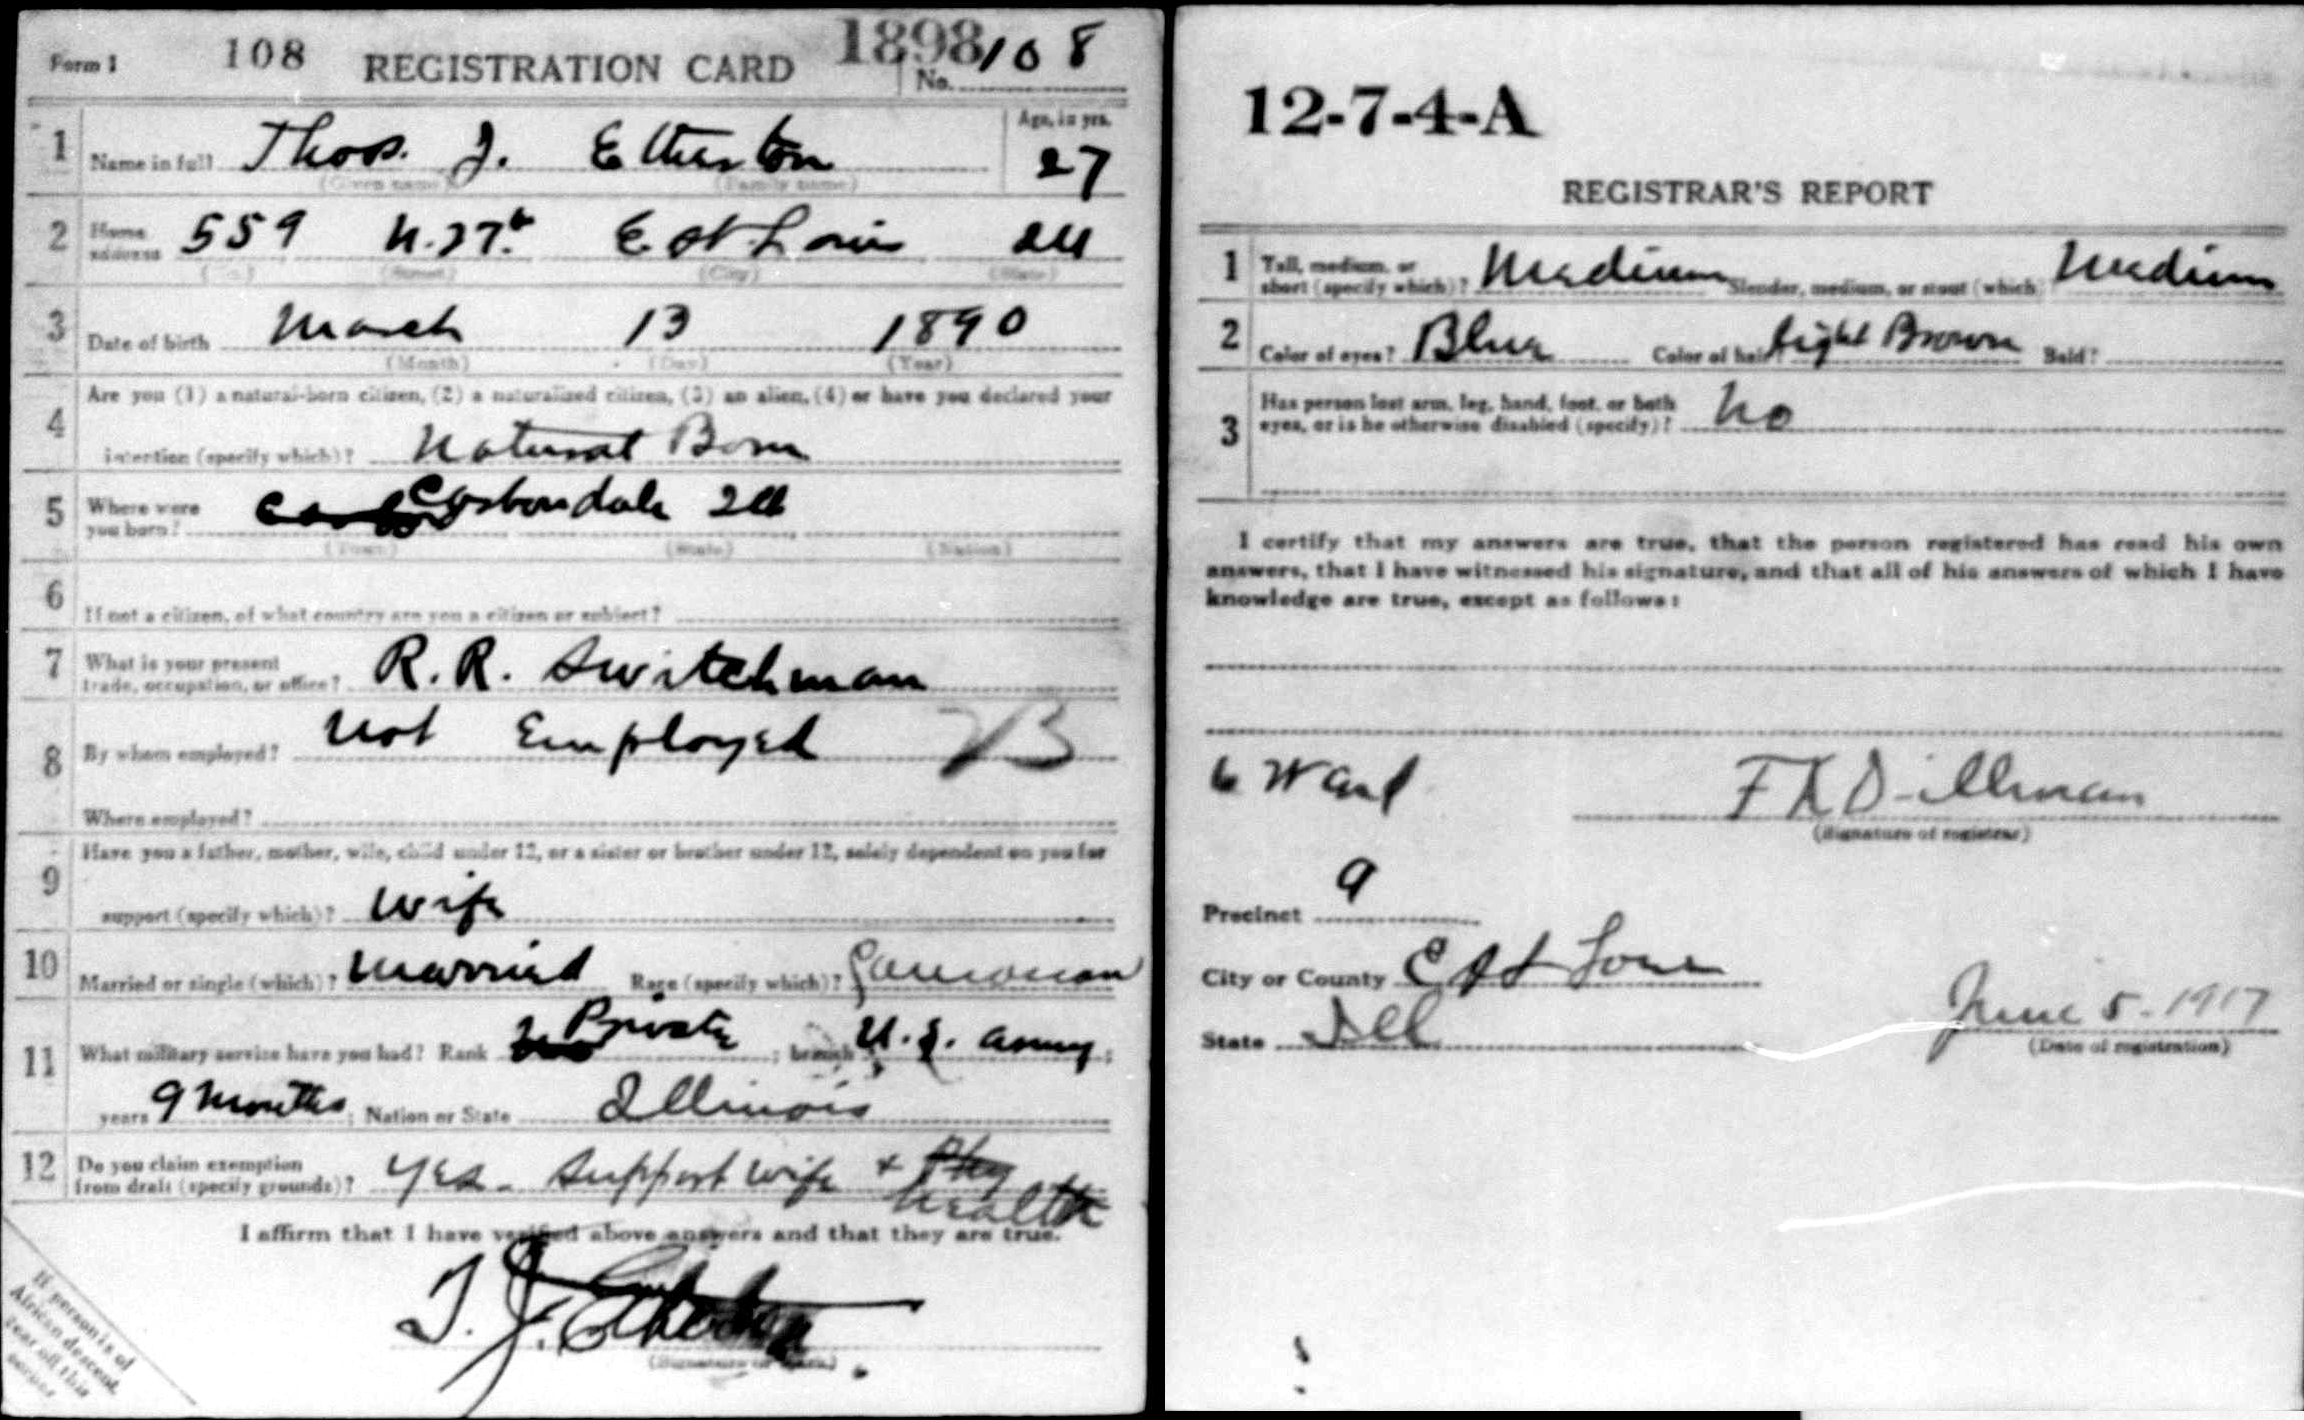 Form 1 108 REGISTRATION CARD 1898 No. 108
1 Name in full Thos. J. Etherton Age, in yrs. 27
(Given name) (Family name)
2 Home address 559 N. 27th E St Louis Ill
(No.) (Street) (City) (State)
3 Date of birth March 13 1890
(Month) (Day) (Year)
4 Are you (1) a natural-born citizen, (2) a naturalized citizen, (3) an alien, (4) or have you declared your
intention (specify which)? Natural Born
5 Where were you born? Carbondale Ill
(Town) (State) (Nation)
6 If not a citizen, of what country are you a citizen or subject?
7 What is your present trade, occupation, or office? R.R. Switchman
8 By whom employed? Not Employed
Where employed?
9 Have you a father, mother, wife, child under 12, or a sister or brother under 12, solely dependent on you for
support (specify which)? Wife
10 Married or single (which)? Married Race (specify which)?
11 What military service have you had? Rank Private ; branch U.S. Army ;
years 9 Months ; Nation or State Illinois
12 Do you claim exemption from draft (specify grounds)? Yes - Support Wife + Phy
health
I affirm that I have verified above answers and that they are true.
T. J. Etherton
(Signature or mark)
If person is of
African descent,
tear off this
corner
12-7-4-A
REGISTRAR'S REPORT
1 Tall, medium, or short (specify which)? Medium Slender, medium, or stout (which) Medium
2 Color of eyes? Blue Color of hair light Brown Bald?
3 Has person lost arm, leg, hand, foot, or both
eyes, or is he otherwise disabled (specify)? No
I certify that my answers are true, that the person registered has read his own
answers, that I have witnessed his signature, and that all of his answers of which I have
knowledge are true, except as follows:
6 Ward F K Dillman
(Signature of registrar)
Precinct 9
City or County E St Louis
State Ill June 5 - 1917
(Date of registration)